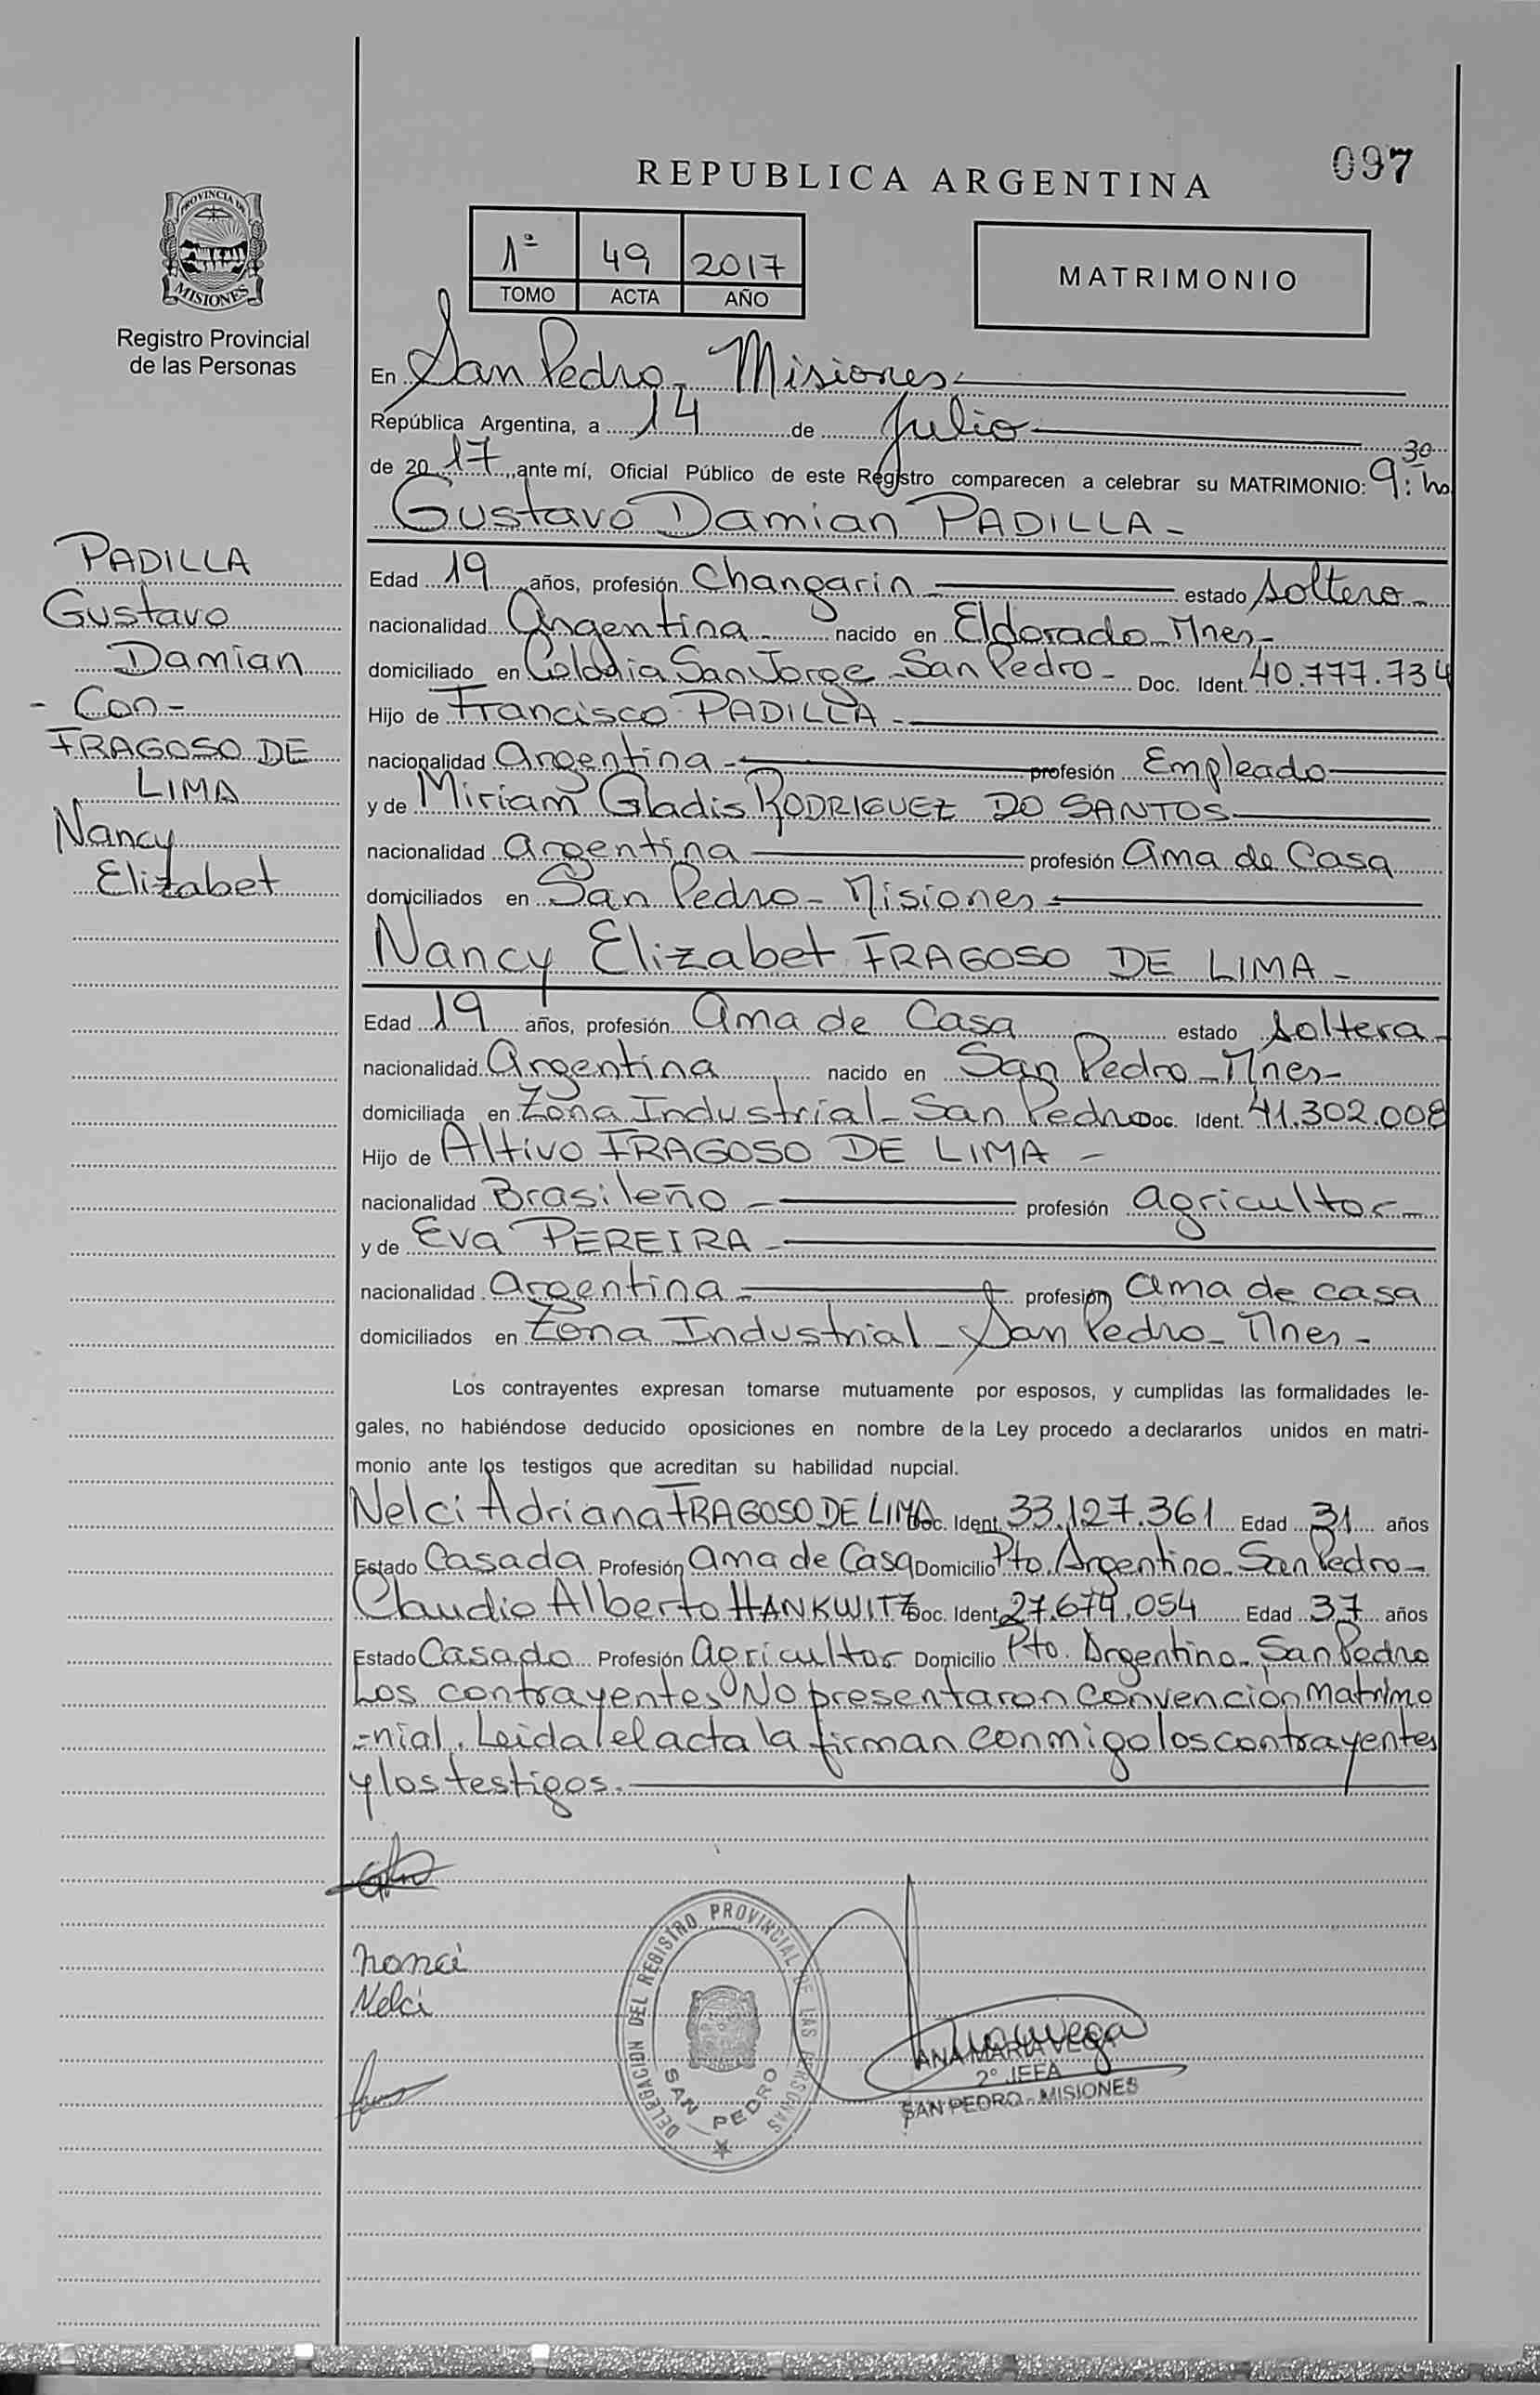 097
REPUBLICA ARGENTINA
PROVINCIA DE
MISIONES
Registro Provincial
de las Personas
1º 49 2017
TOMO ACTA AÑO
MATRIMONIO
En San Pedro - Misiones -
República Argentina, a 14 de Julio
de 2017, ante mí, Oficial Público de este Registro comparecen a celebrar su MATRIMONIO: 9:30 hs
Gustavo Damian PADILLA -
Edad 19 años, profesión Changarin - estado soltero -
nacionalidad Argentina - nacido en Eldorado - Mnes -
domiciliado en Colonia San Jorge - San Pedro - Doc. Ident. 40.777.734
Hijo de Francisco PADILLA -
nacionalidad Argentina - profesión Empleado
y de Miriam Gladis RODRIGUEZ DO SANTOS
nacionalidad Argentina profesión Ama de Casa
domiciliados en San Pedro - Misiones -
PADILLA
Gustavo
Damian
- Con -
FRAGOSO DE
LIMA
Nancy
Elizabet
Nancy Elizabet FRAGOSO DE LIMA -
Edad 19 años, profesión Ama de Casa estado soltera -
nacionalidad Argentina nacido en San Pedro - Mnes -
domiciliada en Zona Industrial - San Pedro Doc. Ident. 41.302.008
Hijo de Altivo FRAGOSO DE LIMA -
nacionalidad Brasileño - profesión agricultor -
y de Eva PEREIRA -
nacionalidad Argentina - profesión ama de casa
domiciliados en Zona Industrial - San Pedro - Mnes -
Los contrayentes expresan tomarse mutuamente por esposos, y cumplidas las formalidades le-
gales, no habiéndose deducido oposiciones en nombre de la Ley procedo a declararlos unidos en matri-
monio ante los testigos que acreditan su habilidad nupcial.
Nelci Adriana FRAGOSO DE LIMA Doc. Ident. 33.127.361 Edad 31 años
Estado Casada Profesión Ama de Casa Domicilio Pto. Argentino - San Pedro -
Claudio Alberto HANKWITZ Doc. Ident. 27.674.054 Edad 37 años
Estado Casado Profesión Agricultor Domicilio Pto. Argentino - San Pedro
Los contrayentes No presentaron Convención Matrimo
-nial. Leida el acta la firman conmigo los contrayentes
y los testigos. -
nonci
Nelci
DELEGACION DEL REGISTRO PROVINCIAL DE LAS PERSONAS
SAN PEDRO
ANA MARIA VEGA
2º JEFA
SAN PEDRO - MISIONES